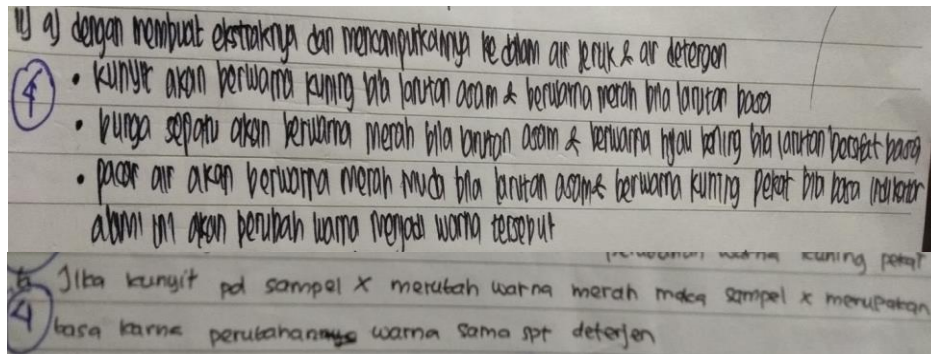 11) a) dengan membuat ekstraknya dan mencampurkannya ke dalam air jeruk & air detergen
4
• kunyit akan berwarna kuning bila larutan asam & berwarna merah bila larutan basa
• bunga sepatu akan berwarna merah bila larutan asam & berwarna hijau kuning bila larutan bersifat basa
• pacar air akan berwarna merah muda bila larutan asam & berwarna kuning pekat bila basa indikator
alami ini akan berubah warna menjadi warna tersebut
warna kuning pekat
b. Jika kunyit pd sampel x merubah warna merah maka sampel x merupakan
4
basa karna perubahannya warna sama spt deterjen